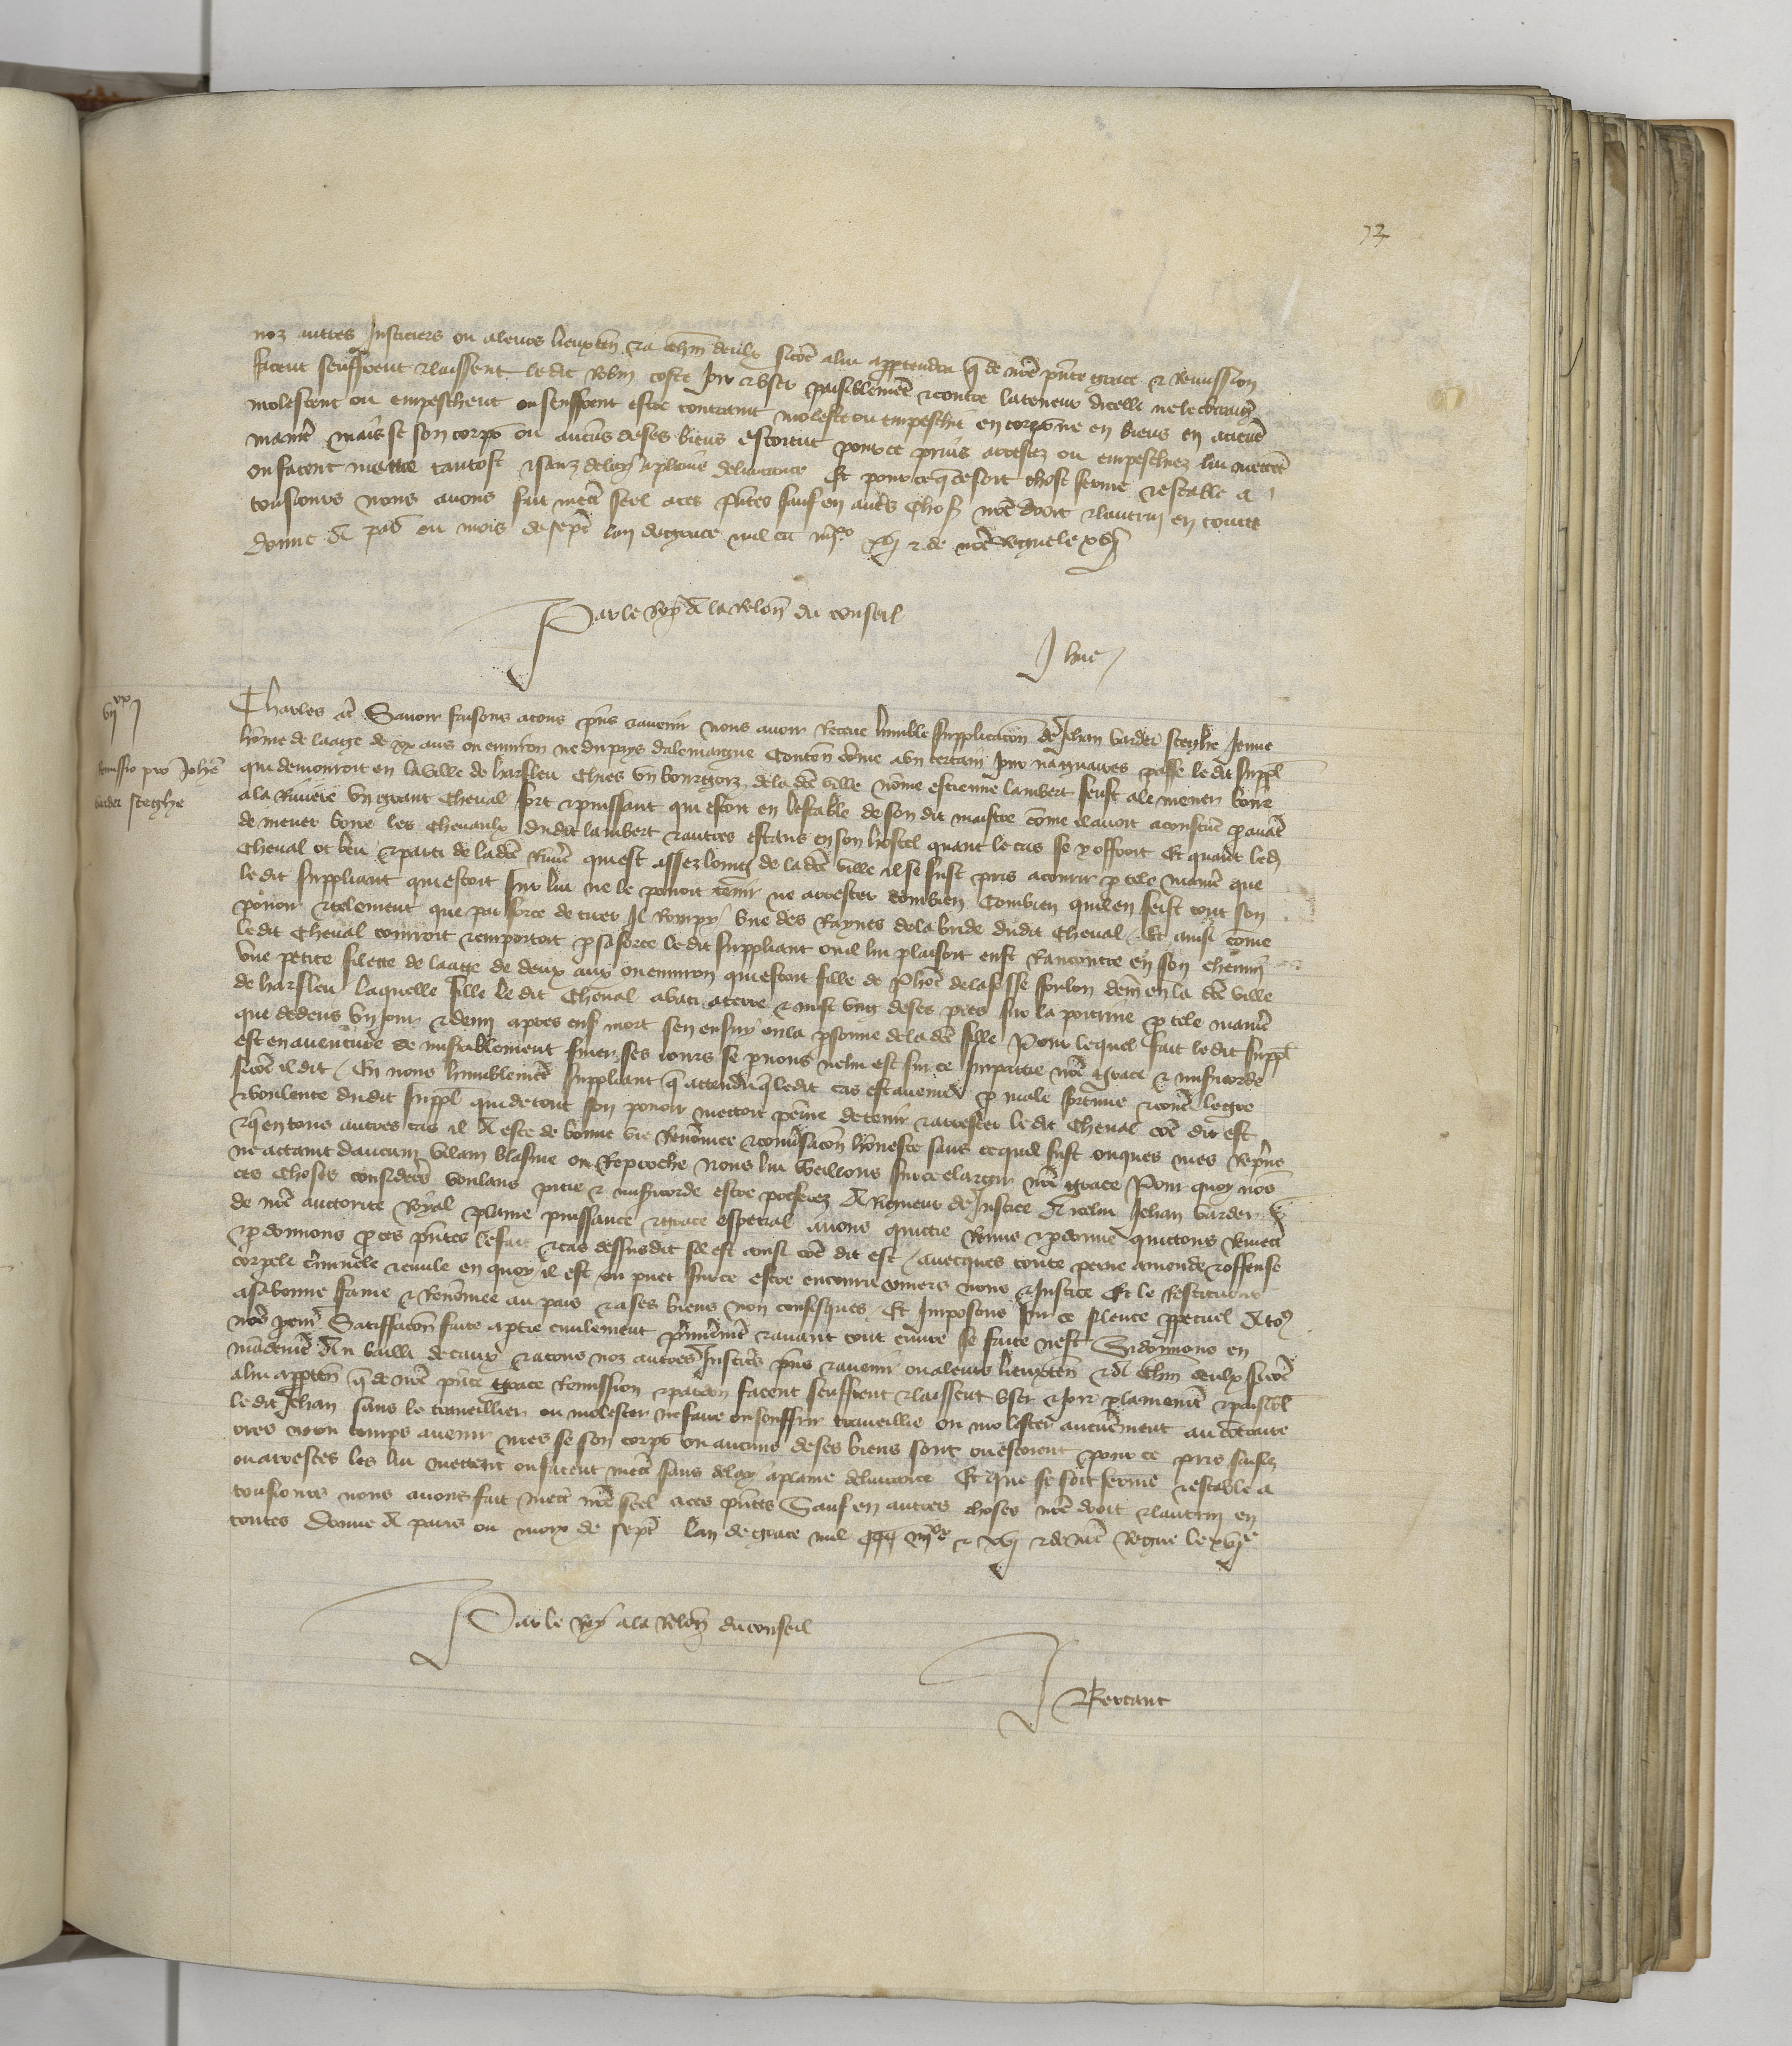 73
noz autres Justiciers ou a leurs lieuxten̄ et a chūn deulx sicōe a lui appartendra q̄ de nr̄e pn̄te grace et Remission
facent seuffrent et laissent ledit Robin coste Joir et user paisiblemēt et contre la teneur dicelle ne le
molestent ou empeschent ou seuffrent estre contraint moleste ou empeschie en corps ne en biens en aucūe
maniē mais se son corps ou aucūs de ses biens estoient pour ce prins arrestez ou empeschiez lui mettēt
ou facent mettre tantost et sanz delay a plaine delivrance Et pour ce q̄ ce soit chose ferme et estable a
tousiours nous avons fait mect̄ seel a ces pn̄tes sauf en autres choses nr̄e droit et lautruy en toutes
Donne A paris ou mois de sept̄ lan de grace mil et iiijxx xvj et de nr̄e Regne le xvij
Par le Roy A la Relōn du conseil
J hue
vijxxj
Remissio pro Johē
vander steghe
Charles etc̄ Savoir faisons a tous pn̄s et avenir nous avoir Receue lumble supplicacōn de Jehan vander steghe Jeune
hōme de laage de xx ans ou environ ne du pays dalemaigne Contenāt cōme a un certain Jour na guaires passe le dit suppl̄
qui demouroit en la ville de harfleu Chies un bourgois de la dc̄e ville nōme estienne lambert feust ale mener boire
a la Riviere Un grant Cheval fort et puissant qui estoit en lestable de son dit maistre cōme il avoit acoustūe p avāt
de mener boire les Chevaulx dudit lambert et autres estans en son hostel quant le cas se y offroit Et quant led̄
Cheval ot beu et parti de la dc̄e Riviē qui est assez loing de la dc̄e ville il se fust pris a courir p tele maniē que
le dit suppliant qui estoit sur lui ne le povoit tenir ne arrester combien Combien quil en feist tout son
povoir et telement que par force de tirer Il Rompy une des Raynes de la bride dudit Cheval Et ainsi cōme
le dit Cheval couroit et emportoit p sa force le dit suppliant ou il lui plaisoit eust Rancontre en son chemin
une petite fillette de laage de deux ans ou environ qui estoit fille de de la fosse dem̄ en la dc̄e ville
de harfleu laquelle fille le dit Cheval abati a terre et mist ung de ses piez sur la poitrine p tele maniē
que dedens un Jour et demi apres ens mort sen ensuy en la psonne de la dc̄e fille Pour lequel fait le dit suppl̄
est en aventure de misablement finer ses iours se p nous ne lui est sur ce impartie nr̄e grace et misicorde
sicōe il dit En nous humblemēt suppliant q̄ attendu q̄ ledit cas est avenu p male fortune et contē le gre
et voulente dudit suppl̄ qui de tout son povoir mettoit peine de tenir et arrester le dit Cheval cōe dit est
et q̄ en tous autres cas il A este de bonne vie Renōmee et convsacōn hōneste sans ce quil fust onques mes Repr̄ns
ne attaint daucun vilain blasme ou Reprouche nous lui vueillons sur ce elargir nr̄e grace Pour quoy nous
ces choses considerēs voulans pitie et misicorde estre preferez A Rigueur de Justice A icelui Jehan vander
de nr̄e auctorite Royal plaine puissance et grace especial avons quictie Remis et pdonne quictons Remect̄
et pdonnons p ces pn̄tes le fait et cas dessusdit sil est ainsi cōe dit est avecques toute peine amende et offense
corpele c̄minele et civile en quoy il est ou puet sur ce estre encouru envers nous et Justice Et le Restituons
a sa bonne fame et Renōmee au pais et a ses biens non confisques Et Imposons sur ce silence ppetuel A nr̄e
Satisfacōn faite a ptie civilement p̄mierēmt et avant tout euvre se faite nest Si donnons en
mandemēt Au bailli de caux et a tous noz autres Justicīs pn̄s et avenir ou a leurs lieuxten̄ et A chūn deulx sicōe
a lui apptēn q̄ de nr̄e pn̄te grace Remission et pardon facent seuffrent et laissent user et Joir plainemēt et paisibl̄
le dit Jehan sans le travaillier ou molester ne faire ou souffrir travaillier ou molester aucunemēt au cōtraire
ores ne ou temps avenir mes se son corps ou aucuns de ses biens sont ou estoient pour ce pris saisis
ou arrestes les lui mettent ou facent mectē sans delay a plaine delivrance Et que se soit ferme et estable a
tousiours nous avons fait mectē nr̄e seel a ces pn̄tes Sauf en autres choses nr̄e droit et lautruy en
toutes Donne A paris ou moys de sept̄ lan de grace mil iijc iiijxx et xvj et de nr̄e Regne le xvije
Par le Roy a la Relōn du conseil
J Bertaut